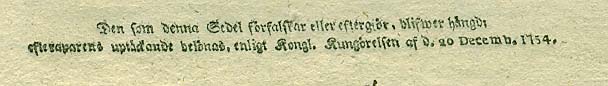 Den som denna Sedel förfalskar eller eftergiör, blifwer hängd;
efteraparens uptäckande belönas, enligt Kongl. Kungörelsen af d. 20 Decemb. 1754.